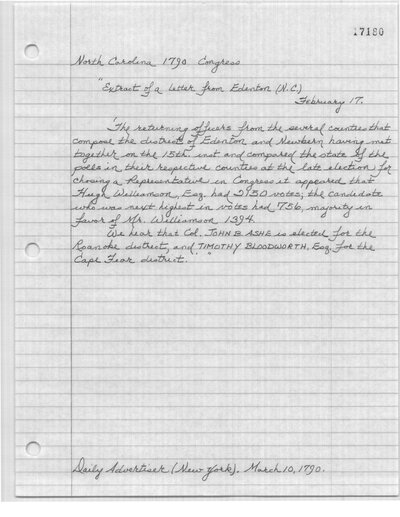 17180
North Carolina 1790 Congress
"Extract of a letter from Edenton (N.C.)
February 17.
'The returning officers from the several counties that
compose the districts of Edenton and Newbern having met
together on the 15th. inst and compared the state of the
polls in their respective counties at the late election for
chosing a Representative in Congress it appeared that
Hugh Williamson, Esq. had 2150 votes; the candidate
who was next highest in votes had 756, majority in
favor of Mr. Williamson 1394.
We hear that Col. JOHN B. ASHE is elected for the
Roanoke district, and TIMOTHY BLOODWORTH, Esq. for the
Cape Fear district.' "
Daily Advertiser (New York). March 10, 1790.